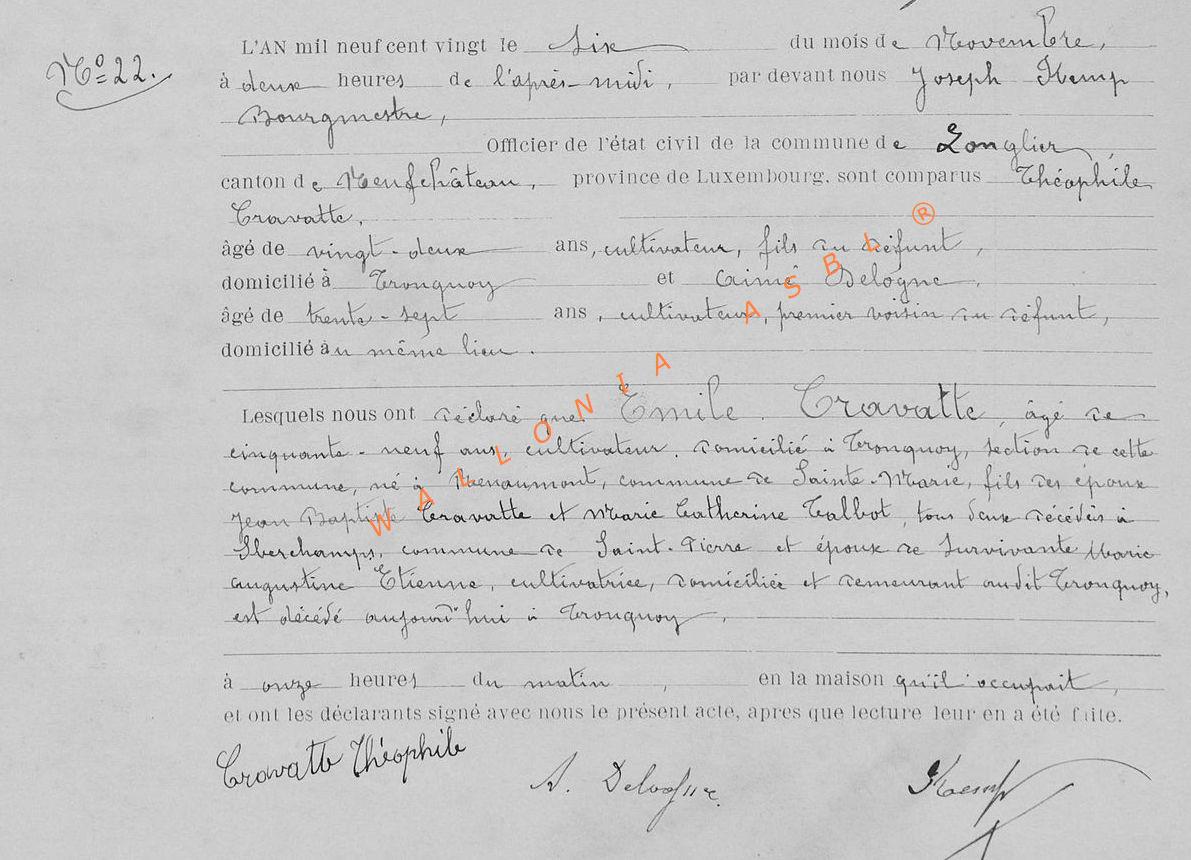 N° 22.
L'AN mil neuf cent vingt le six du mois de Novembre,
à deux heures de l'après-midi, par devant nous Joseph Kemp
Bourgmestre,
Officier de l'état civil de la commune de Longlier,
canton de Neufchâteau, province de Luxembourg, sont comparus Théophile
Cravatte,
âgé de vingt-deux ans, cultivateur, fils du défunt,
domicilié à Tronquoy et Aimé Delogne,
âgé de trente-sept ans, cultivateur, premier voisin du défunt,
domicilié au même lieu.
Lesquels nous ont déclaré que Emile Cravatte, âgé de
cinquante-neuf ans, cultivateur, domicilié à Tronquoy, section de cette
commune, né à Menaumont, commune de Sainte-Marie, fils des époux
Jean Baptiste Cravatte et Marie Catherine Talbot, tous deux décédés à
commune de Saint-Pierre et époux de survivante Marie
augustine Etienne, cultivatrice, domiciliée et demeurant audit Tronquoy,
est décédé aujourd'hui à Tronquoy,
à onze heures du matin, en la maison qu'il occupait,
et ont les déclarants signé avec nous le présent acte, apres que lecture leur en a été faite.
Cravatte Théophile
A. Delogne
WALLONIA ASBL ®